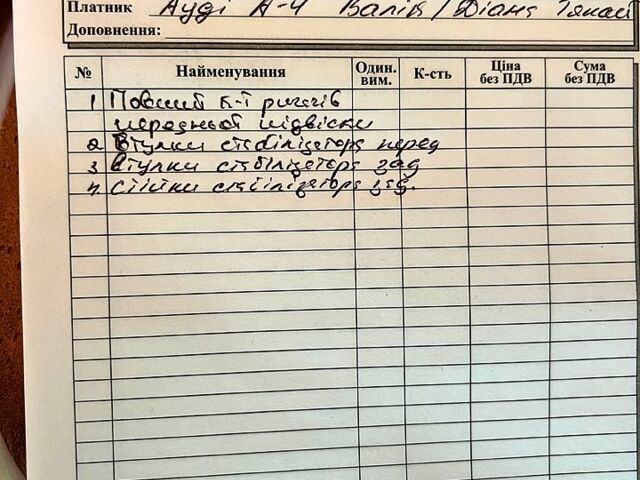 Платник Ауді А-4 Валік / Діана
Доповнення:
№ Найменування Один. вим. К-сть Ціна без ПДВ Сума без ПДВ
1 Повний к-т ричагів
передньої підвіски
2 Втулки стабілізатора перед
3 Втулки стабілізатора зад
4. Стійки стабілізатора зад.